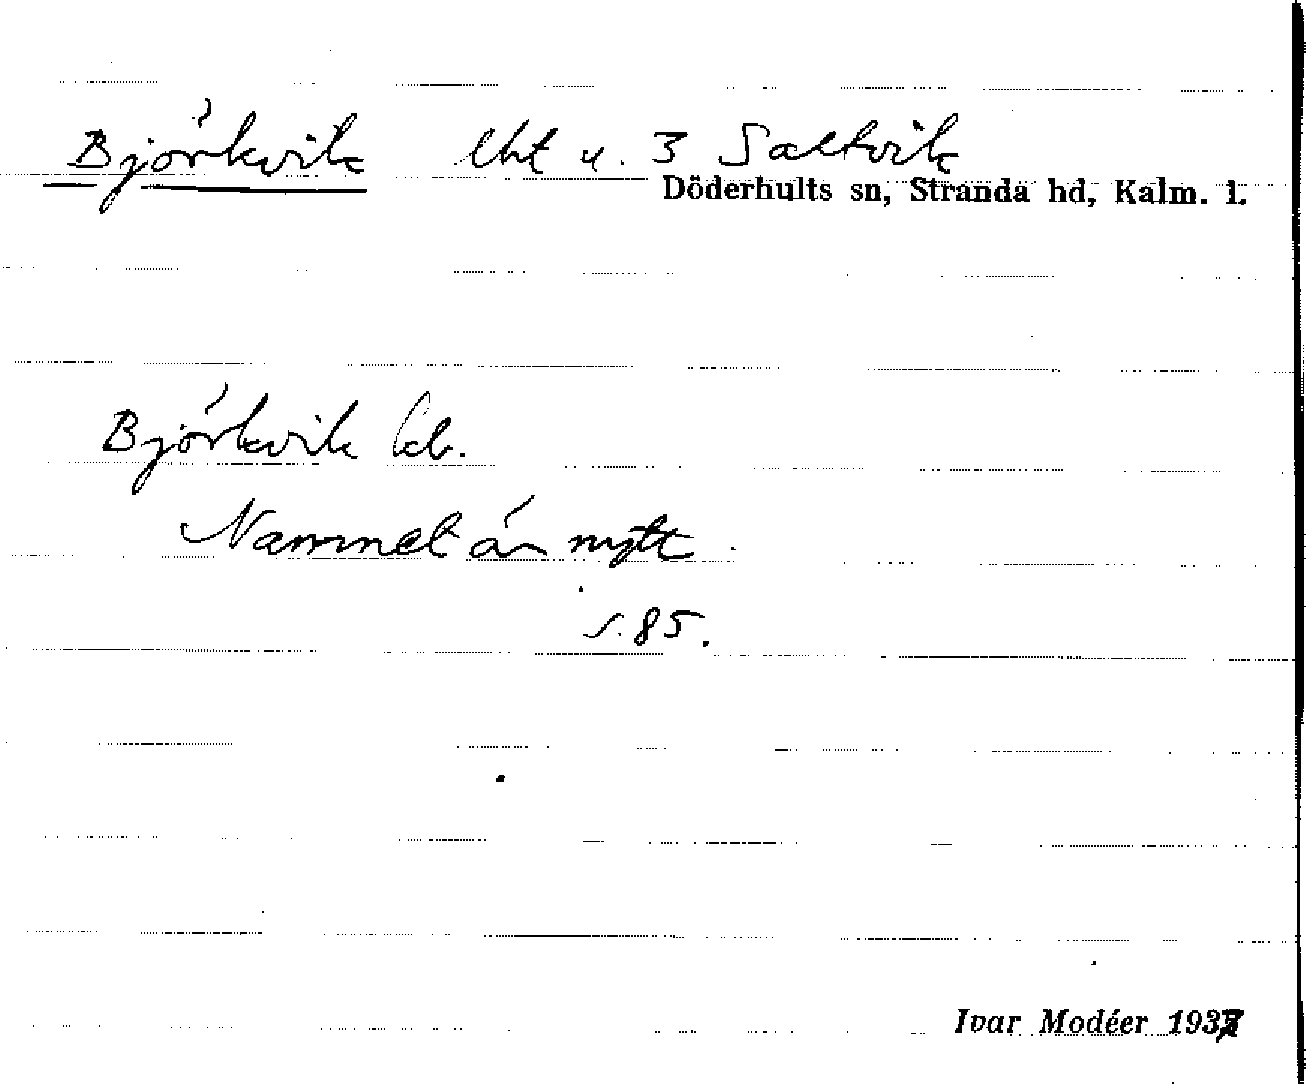 Björkvik lht u. 3 Saltvik
Döderhults sn, Stranda hd, Kalm. l.
Björkvik kb.
Namnet är nytt.
s. 85.
Ivar Modéer 1937